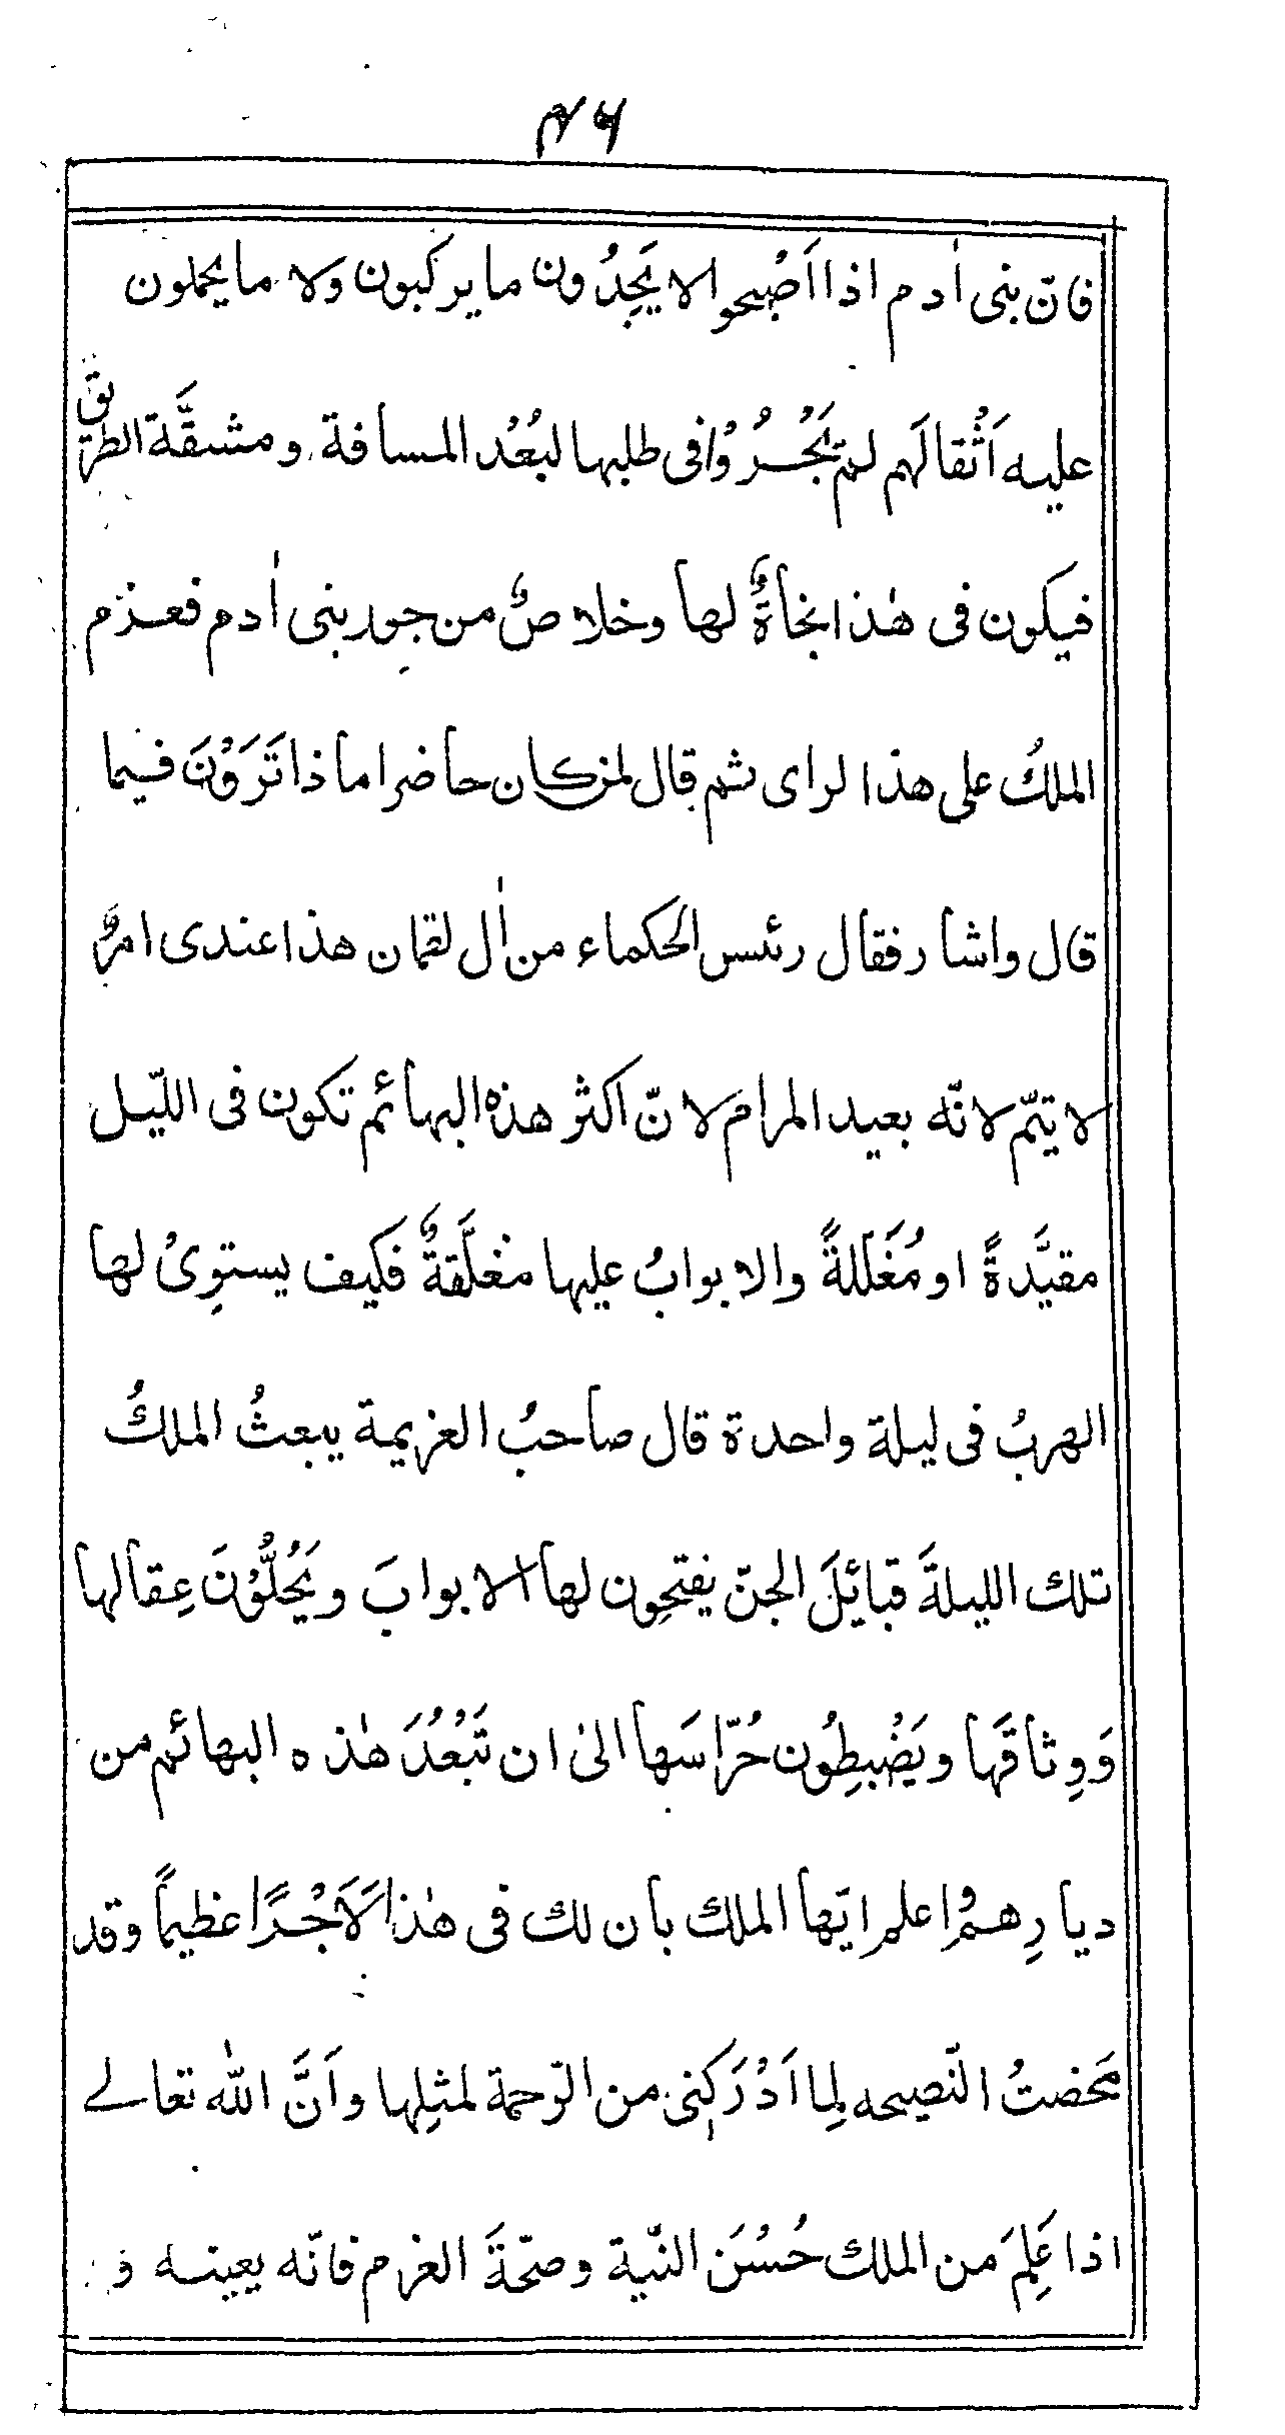 ۴۶
فانّ بنى اٰدم اذا اَصْبحوا لا يَجِدُون ما يركبون ولا ما يحملون
عليه اَثْقالَهم لم يَجْسُرُوْا فى طلبها لبُعْد المسافة ومشقَّة الطريق
فيكون فى هٰذا نجاةٌ لها وخلاصٌ من جور بنى اٰدم فعزم
الملكُ على هذا لراى ثم قال لمن كان حاضرا ماذا تَرَوْنَ فيما
قال واشار فقال رئيس الحكماء من اٰل لقمان هذا عندى امرٌ
لا يتمّ لانّه بعيد المرام لانّ اكثر هذه البهائم تكون فى اللّيل
مقيَّدةً او مُغَلَلةً والابوابُ عليها مغلَّقةٌ فكيف يستوِىْ لها
الهربُ فى ليلة واحدة قال صاحبُ العزيمة يبعثُ الملكُ
تلك الليلةَ قبائلَ الجنّ يفتحِون لها الابوابَ ويَحُلُّوْنَ عِقالها
وَوِثاقَها ويَضْبِطُون حُرّاسَها الىٰ ان تَبْعُدَ هٰذه البهائم من
ديارِهمْ واعلم ايّها الملك بان لك فى هٰذا لَاَجْرًا عظيماً وقد
مَحضتُ النّصيحه لِما اَدْرَكنِى من الرّحمة لمثلِها واَنَّ اللّٰه تعالے
اذا عَلِمَ من الملك حُسْنَ النّية وصحّةَ العزم فانّه يعينه و